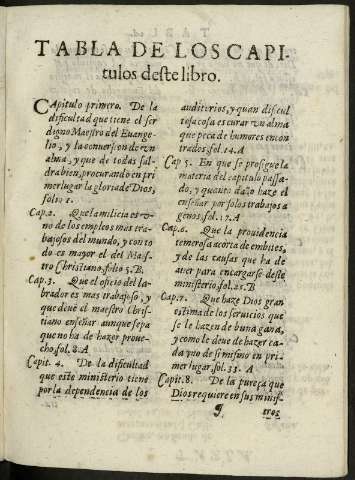 TABLA DE LOS CAPI-
tulos deste libro.
CApitulo primero. De la
dificultad que tiene el ser
digno Maestro del Euange-
lio, y la conuersion de vn
alma, y que de todas sal-
dra bien, procurando en pri
mer lugar la gloria de Dios,
folio 1.
Cap. 2. Que la milicia es v-
no de los empleos mas tra-
bajosos del mundo, y con to
do es mayor el del Maes-
tro Christiano, folio 5. B.
Cap. 3. Que el oficio del la-
brador es mas trabajoso, y
que deue el maestro Chris-
tiano enseñar aunque sepa
que no ha de hazer proue-
cho, fol. 8. A
Capit. 4. De la dificultad
que este ministerio tiene
por la dependencia de los
auditorios, y quan dificul
tosa cosa es curar vn alma
que peca de humores encon
trados. fol. 14. A
Cap 5. En que se prosigue la
materia del capitulo passa-
do, y quanto daño haze el
enseñar por solos trabajos a
genos. fol. 17. A
Cap. 6. Que la prouidencia
temerosa acorta de embites,
y de las causas que ha de
auer para encargarse deste
ministerio. fol. 25. B.
Cap. 7. Que haze Dios gran
estima de los seruicios que
se le hazen de buna gana,
y como le deue de hazer ca-
da vno de si mismo en pri-
mer lugar. fol. 33. A
Capit. 8. De la pureça que
Dios requiere en sus minis-
tros